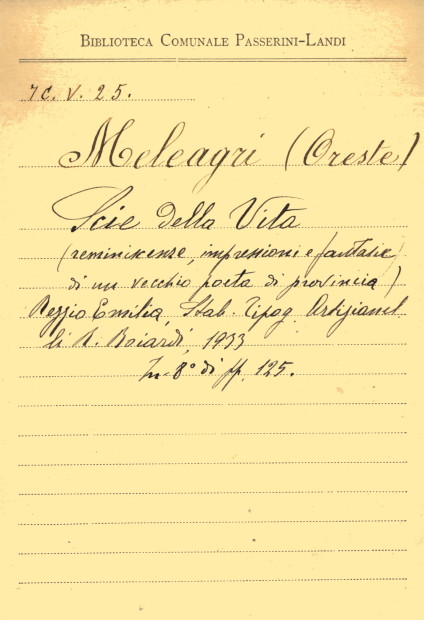 BIBLIOTECA COMUNALE PASSERINI-LANDI
7C. V. 25.
Meleagri (Oreste)
Scie della Vita
(reminiscenze, impressioni e fantasie
di un vecchio poeta di provincia)
Reggio Emilia, Stab. Tipog. Artigianel
li R. Boiardi, 1933
In-8° di ff. 125.